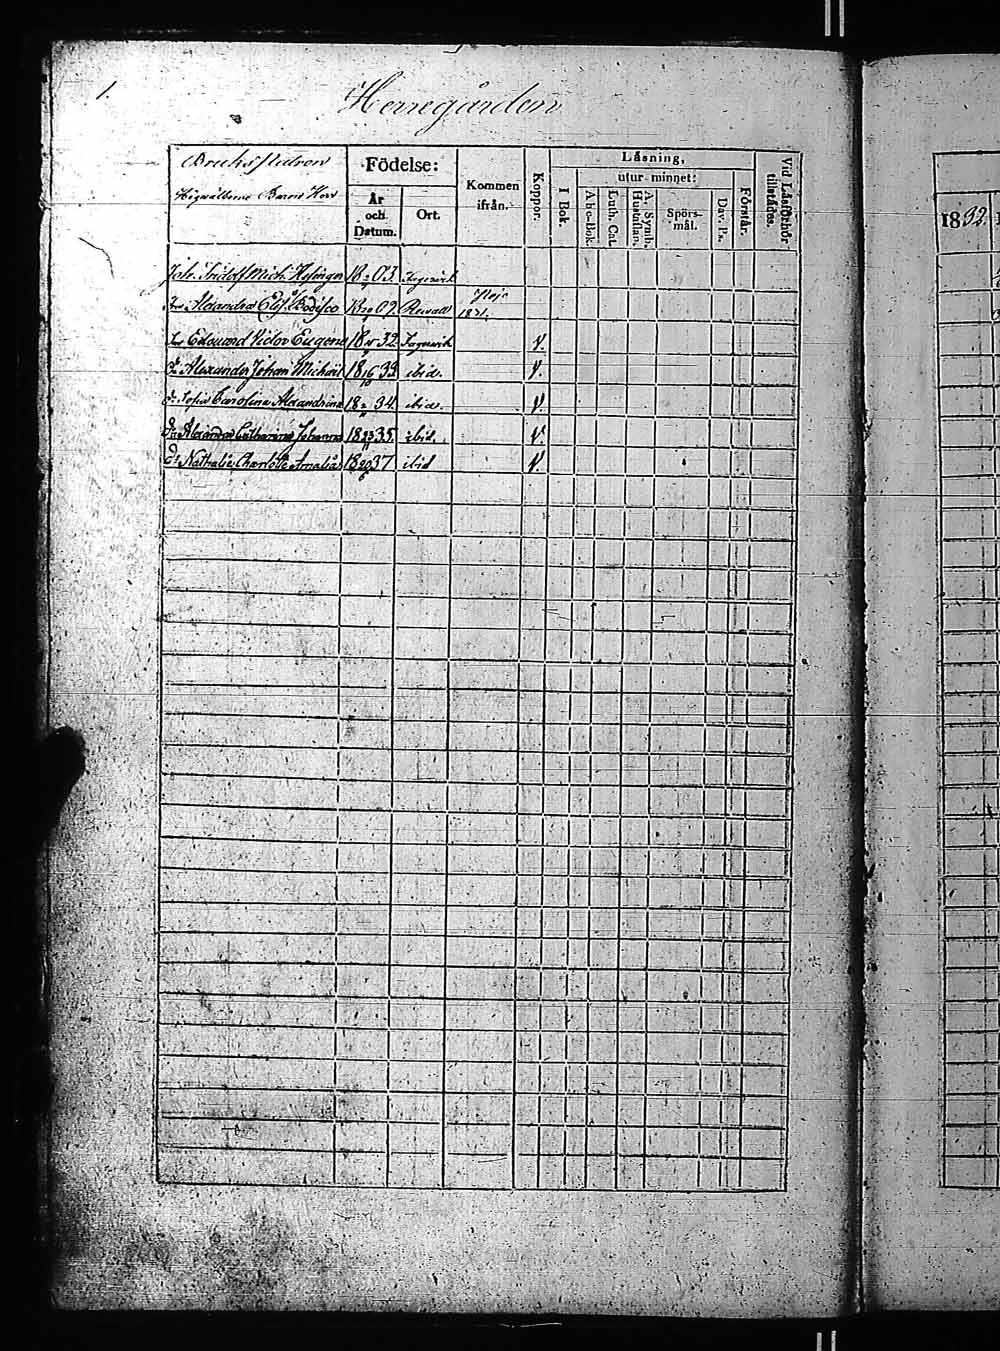 1.
Herregården
Bruks Patron
Högvälborne Baron Herr
Födelse:
År och Datum.
Ort.
Kommen ifrån.
Koppor.
Läsning,
I Bok.
utur minnet:
A b c-Bok.
Luth. Cat.
A. Symb. Hustaflan.
Spörs-mål.
Dav. Ps.
Förstår.
Vid Läsförhör tillstädes.
1832.
Joh. Fridolf Mich. Hisinger 18 03. Fagervik
Fru Alexandra Elis. Bodisco 18 09. Reval 1831.
Edouard Victor Eugene 18 32. Fagervik v.
Alexander Johan Michael 18 16/10 33 ibid. v.
Sofia Carolina Alexandrina 18 34. ibid. v.
Alexandra Catharina Johanna 18 23 35. ibid. v
Nathalie Charlotte Amalia 18 20 37 ibid v.